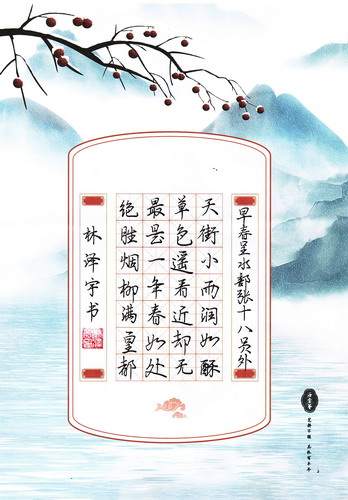 早春呈水部张十八员外
天街小雨润如酥
草色遥看近却无
最是一年春好处
绝胜烟柳满皇都
林泽宇书